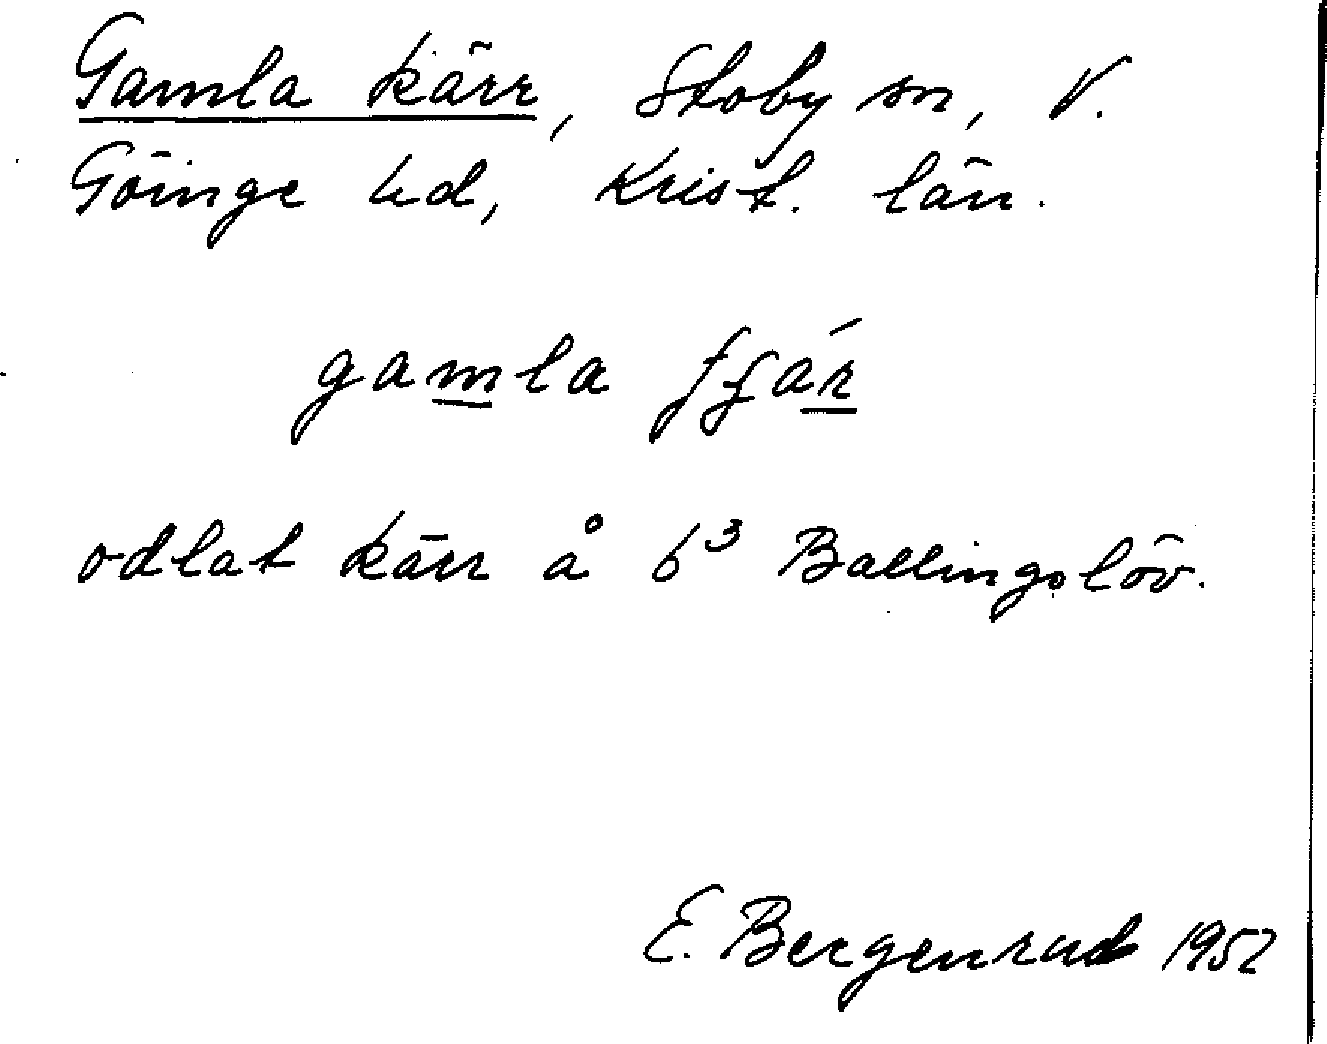 Gamla kärr, Stoby sn, V.
Göinge hd, Krist. län.
gamla fjár
odlat kärr å 6³ Ballingslöv.
E. Bergenrud 1952